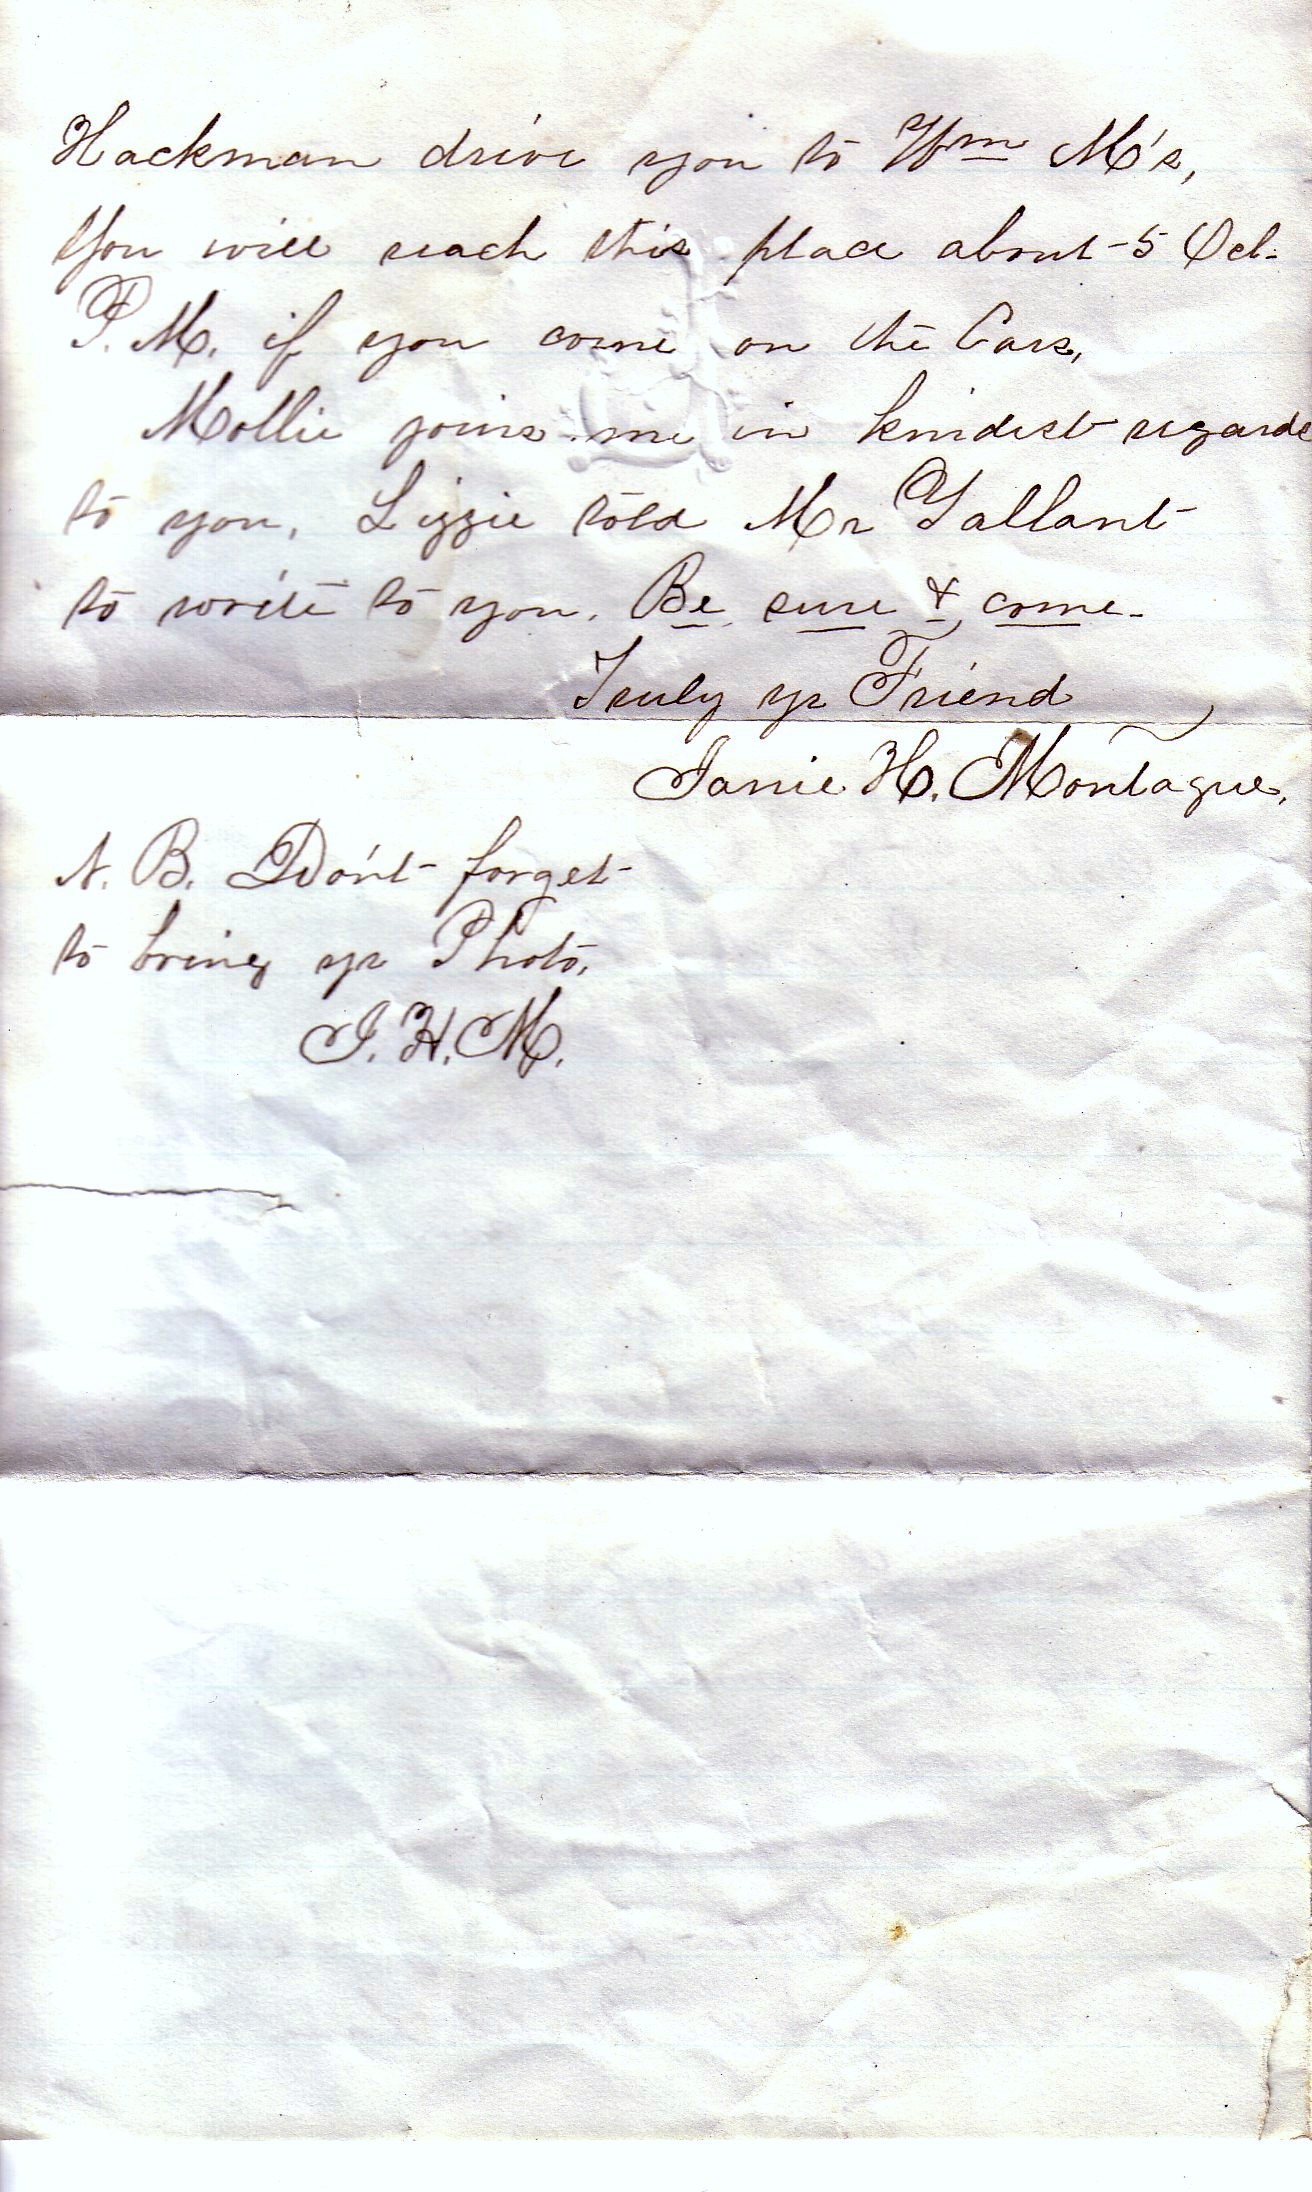 Hackman drive you to Wm M's,
You will reach this place about 5 Ocl.
P.M. if you come on the Cars,
Mollie joins me in kindest regards
to you, Lizzie told Mr Tallant
to write to you. Be sure & come.
Truly yr Friend
Janie H. Montague.
N. B. Don't forget
to bring yr Photo,
J. H. M.